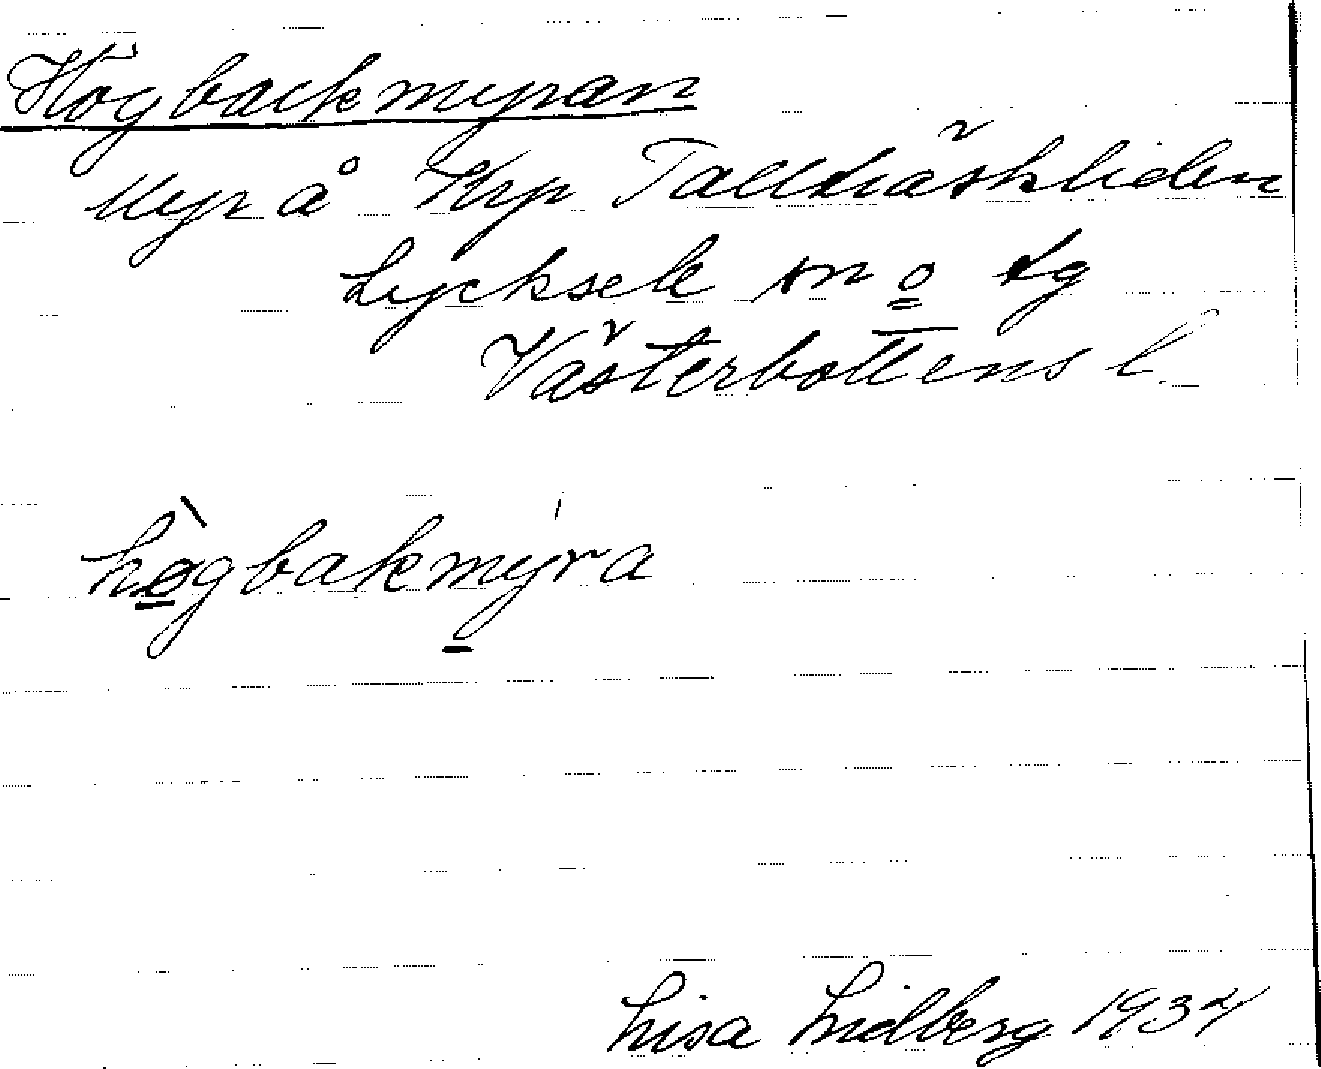 Högbackmyran
Myr å Krp Tallträskliden
Lycksele sn o tg
Västerbottens l.
hø̀gbakmýra
Lisa Lidberg 1934